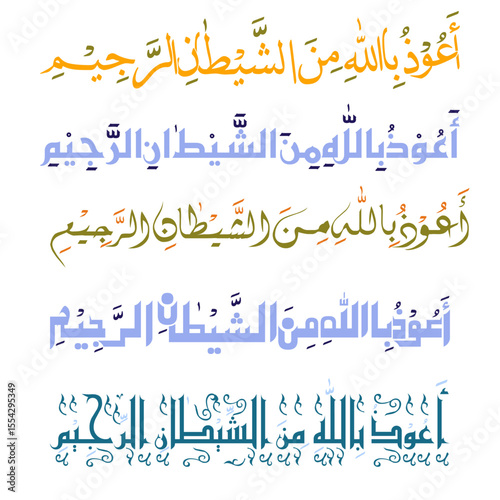 أَعُوْذُ بِاللّٰهِ مِنَ الشَّيْطٰانِ الرَّجِيْمِ
أَعُوْذُ بِاللّٰهِ مِنَ الشَّيْطٰانِ الرَّجِيْمِ
أَعُوْذُ بِاللّٰهِ مِنَ الشَّيْطٰانِ الرَّجِيْمِ
أَعُوْذُ بِاللّٰهِ مِنَ الشَّيْطٰانِ الرَّجِيْمِ
أعوذ بالله من الشيطان الرحيم
Adobe Stock | #1554295349